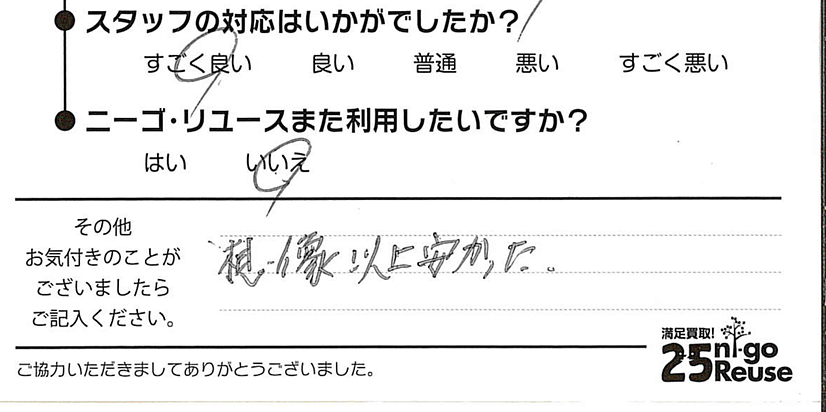 スタッフの対応はいかがでしたか？
すごく良い 良い 普通 悪い すごく悪い
ニーゴ・リユースまた利用したいですか？
はい いいえ
その他
お気付きのことが
ございましたら
ご記入ください。
想像以上安かった。
ご協力いただきましてありがとうございました。
満足買取!
25 ni-go
Reuse